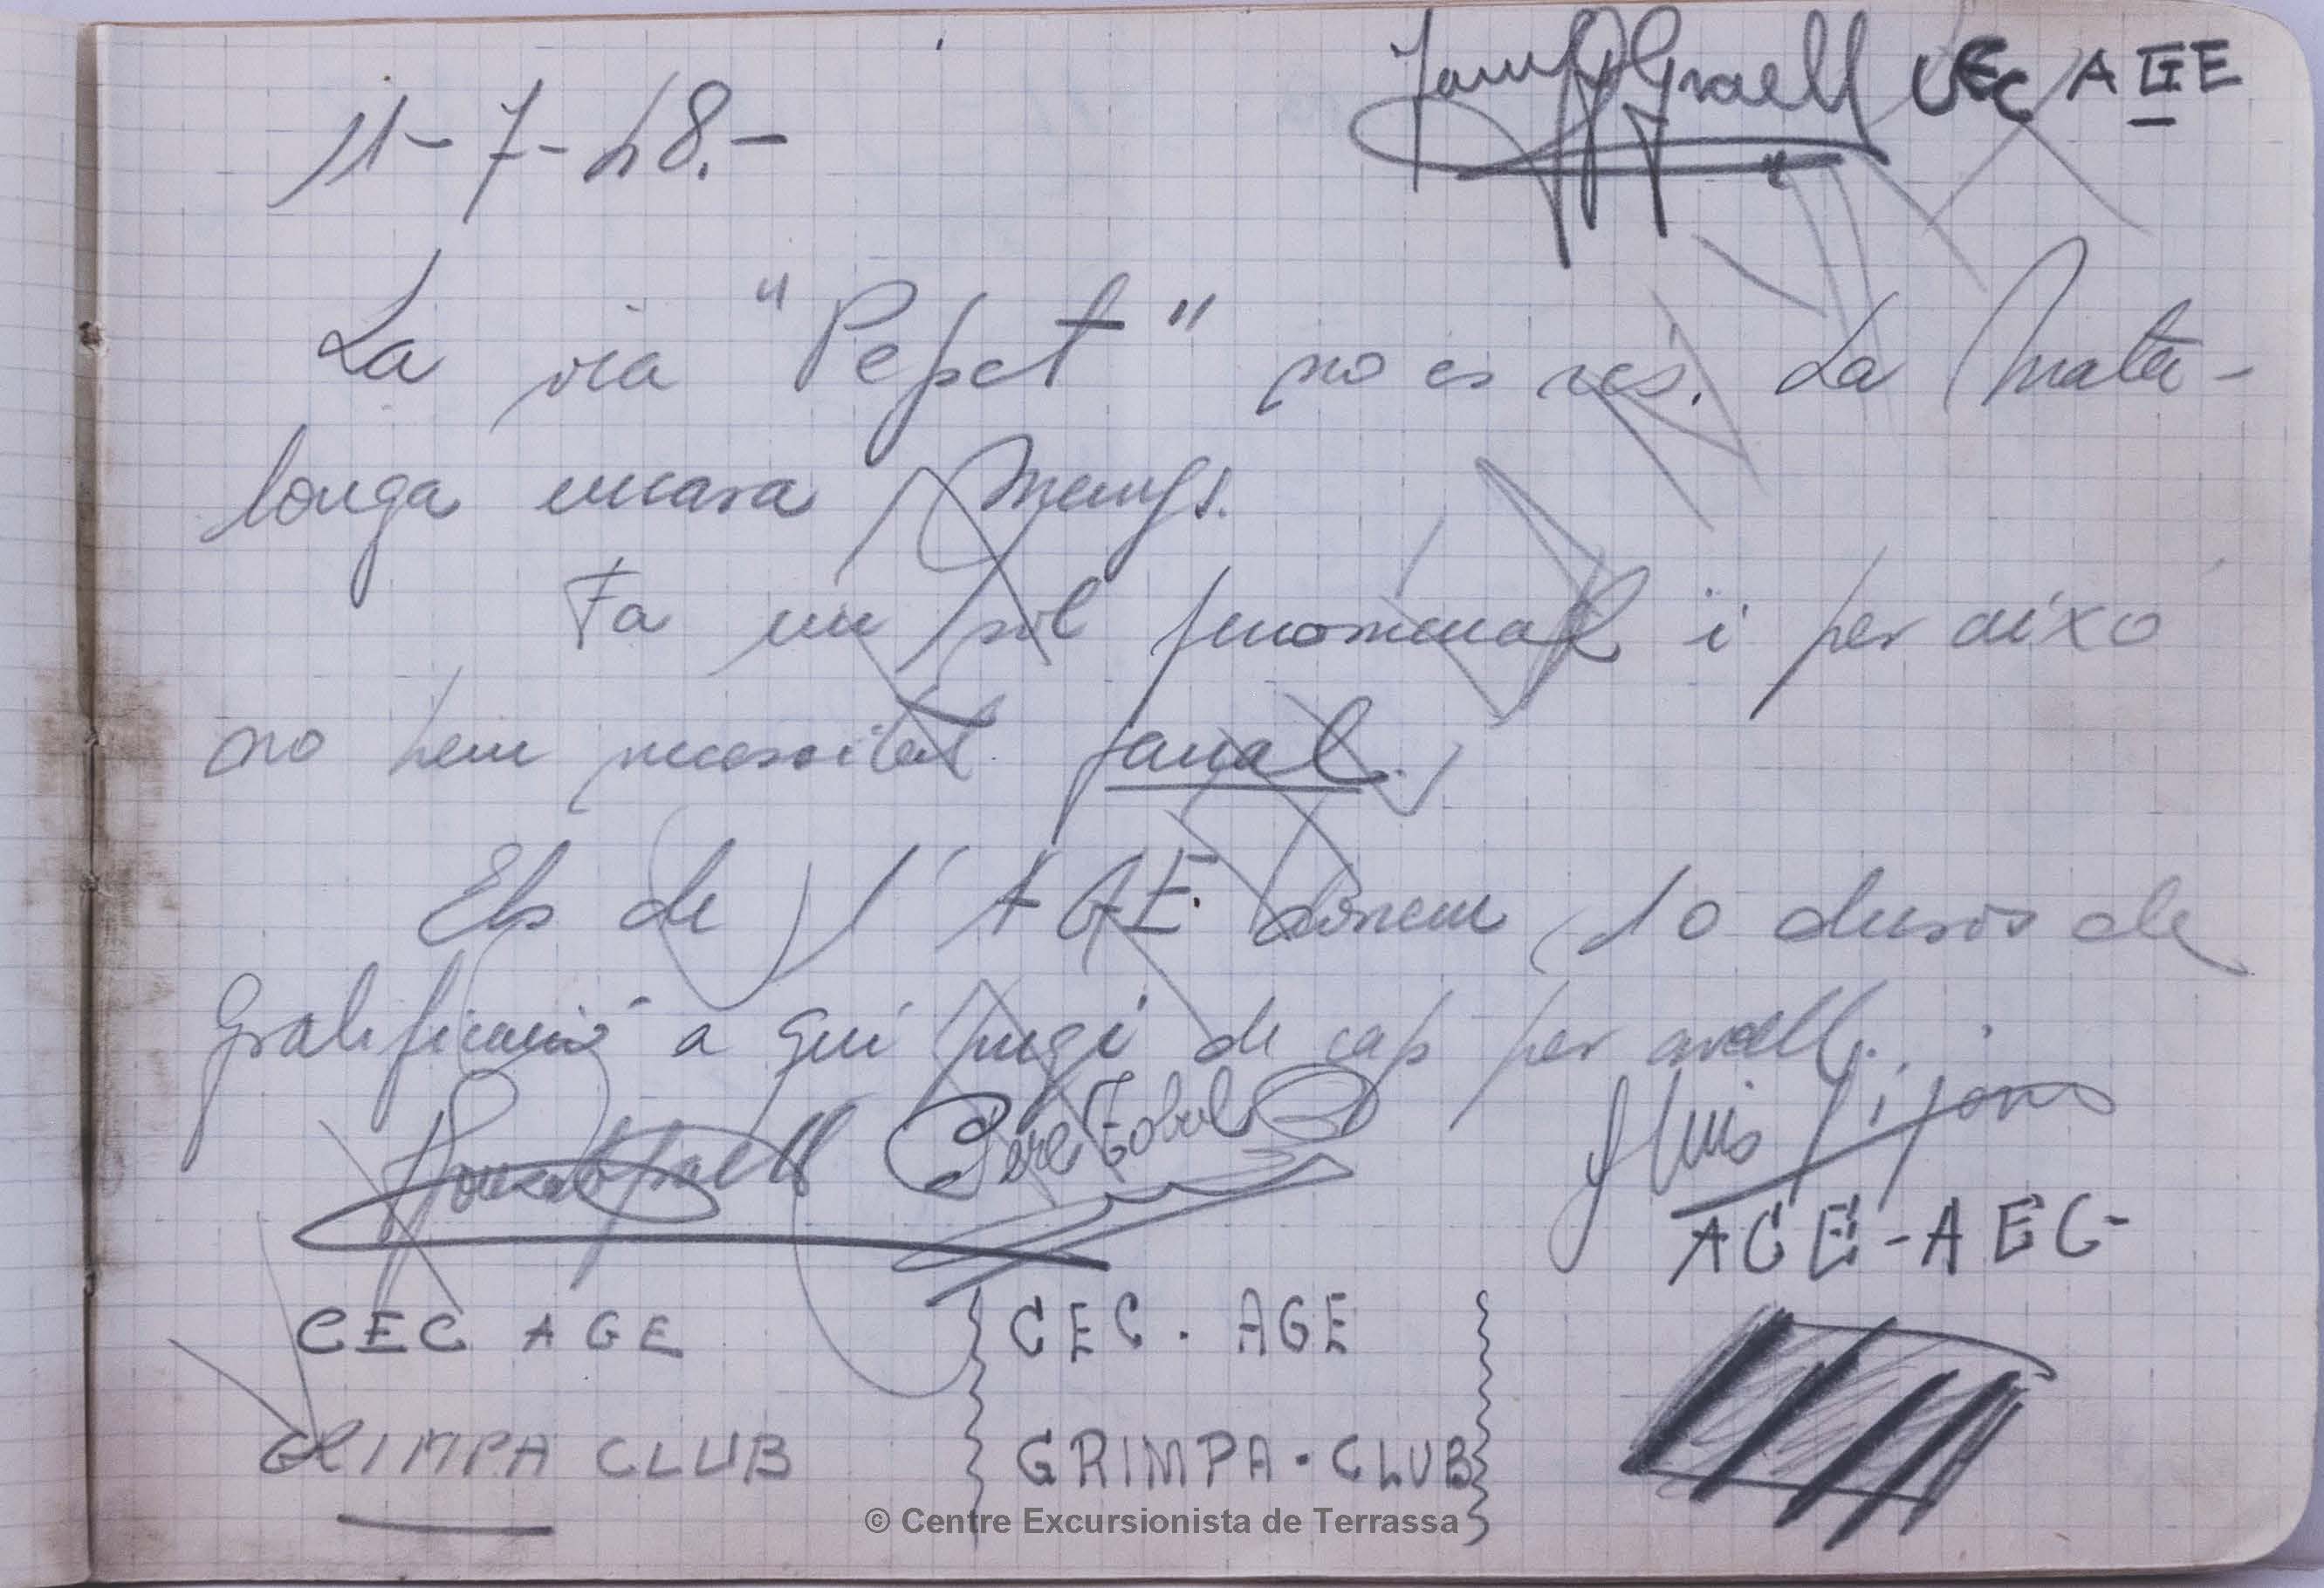 Graell UEC AGE
11-7-48.-
La via "Pepet" no es res. La Mata-
longa encara menys.
Fa un sol fenomenal i per aixó
no hem necessitat fanal.
Els de l'AGE. donem 10 duros de
Gratificació a qui pugi de cap per avall.
Pere
Lluis
ACE-AEC-
CEC AGE
CEC. AGE
GRIMPA CLUB
GRIMPA-CLUB
© Centre Excursionista de Terrassa